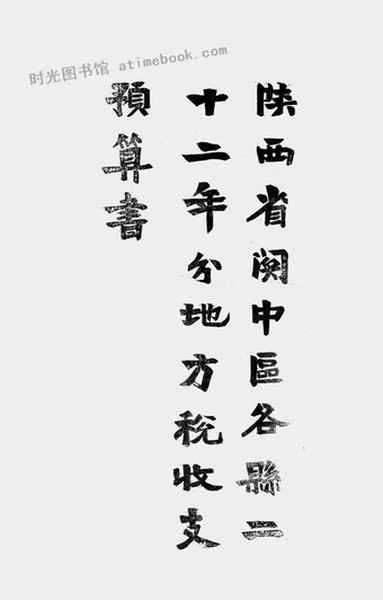 时光图书馆 atimebook.com
陝西省関中區各縣二
十二年分地方稅收支
預算書